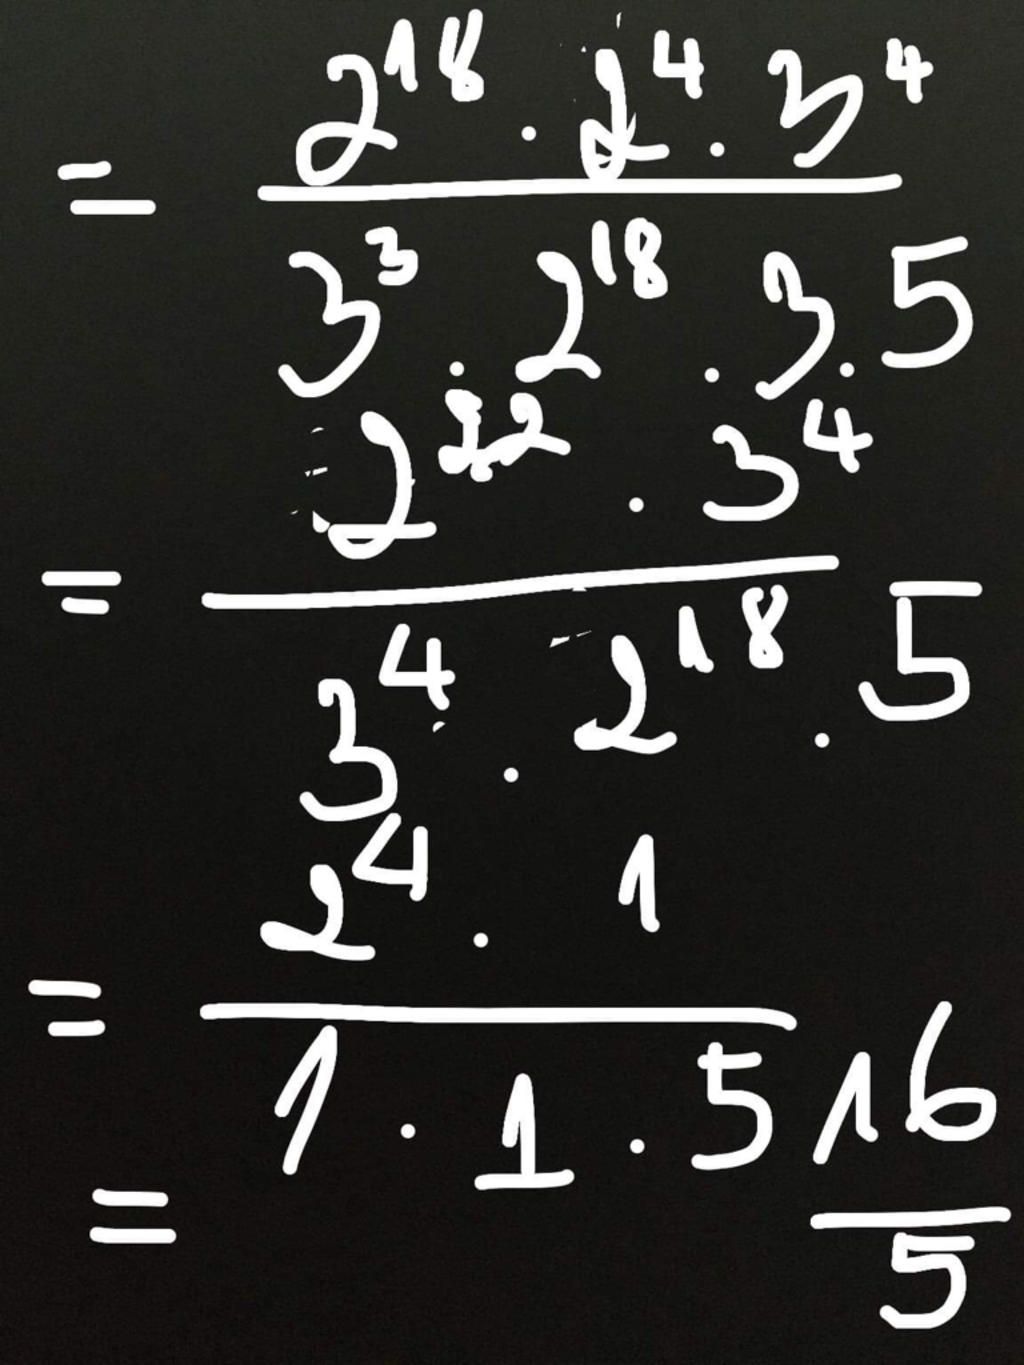 = 2¹⁸ · 2⁴ · 3⁴
3³ · 2¹⁸ · 3 · 5
= 2²² · 3⁴
3⁴ · 2¹⁸ · 5
= 2⁴ · 1
1 · 1 · 5
= 16
5